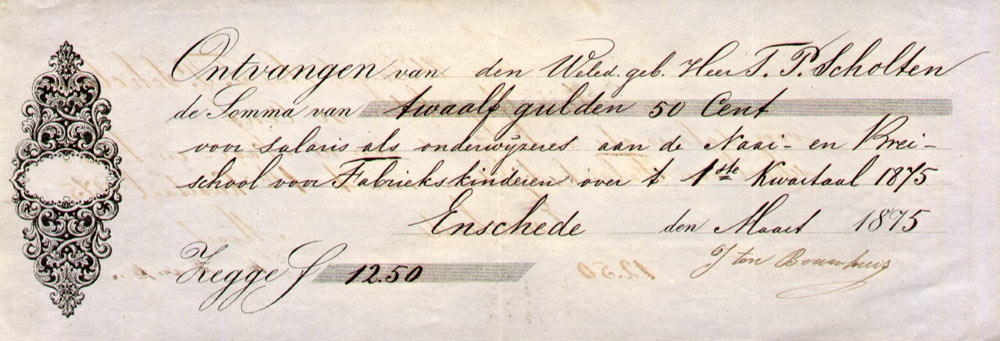 Ontvangen van den Weled. geb. Heer T. P. Scholten
de Somma van twaalf gulden 50 Cent
voor salaris als onderwijzeres aan de Naai- en Brei-
school voor Fabriekskinderen over t 1ste Kwartaal 1875
Enschede den Maart 1875
Zegge f 12.50
J ten Bouwhuis